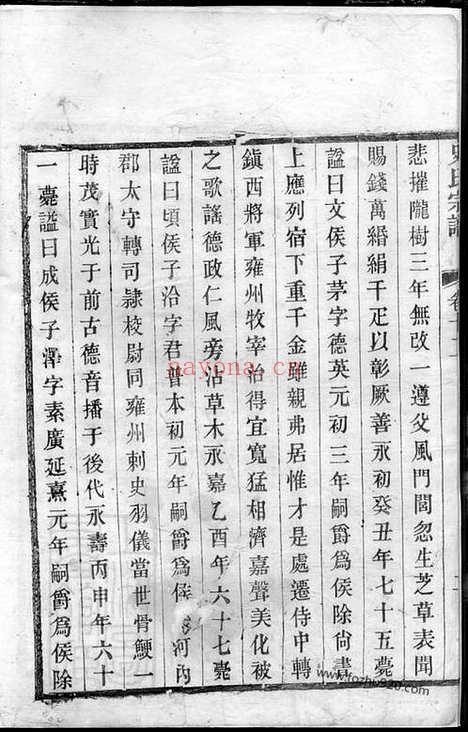 史氏宗譜
卷十二
悲摧隴樹三年無改一遵父風門閭忽生芝草表聞
賜錢萬緡絹千疋以彰厥善永初癸丑年七十五薨
諡曰文侯子茅字德英元初三年嗣爵為侯除尙書
上應列宿下重千金雖親弗居惟才是處遷侍中轉
鎭西將軍雍州牧宰治得宜寬猛相濟嘉聲美化被
之歌謠德政仁風旁沾草木永嘉乙酉年六十七薨
諡曰頃侯子洽字君普本初元年嗣爵為侯 河內
郡太守轉司隷校尉同雍州刺史羽儀當世骨鯁一
時茂實光于前古德音播于後代永壽丙申年六十
一薨諡曰成侯子澤字素廣延熹元年嗣爵為侯除
nayona.cn
www.fozhu920.com